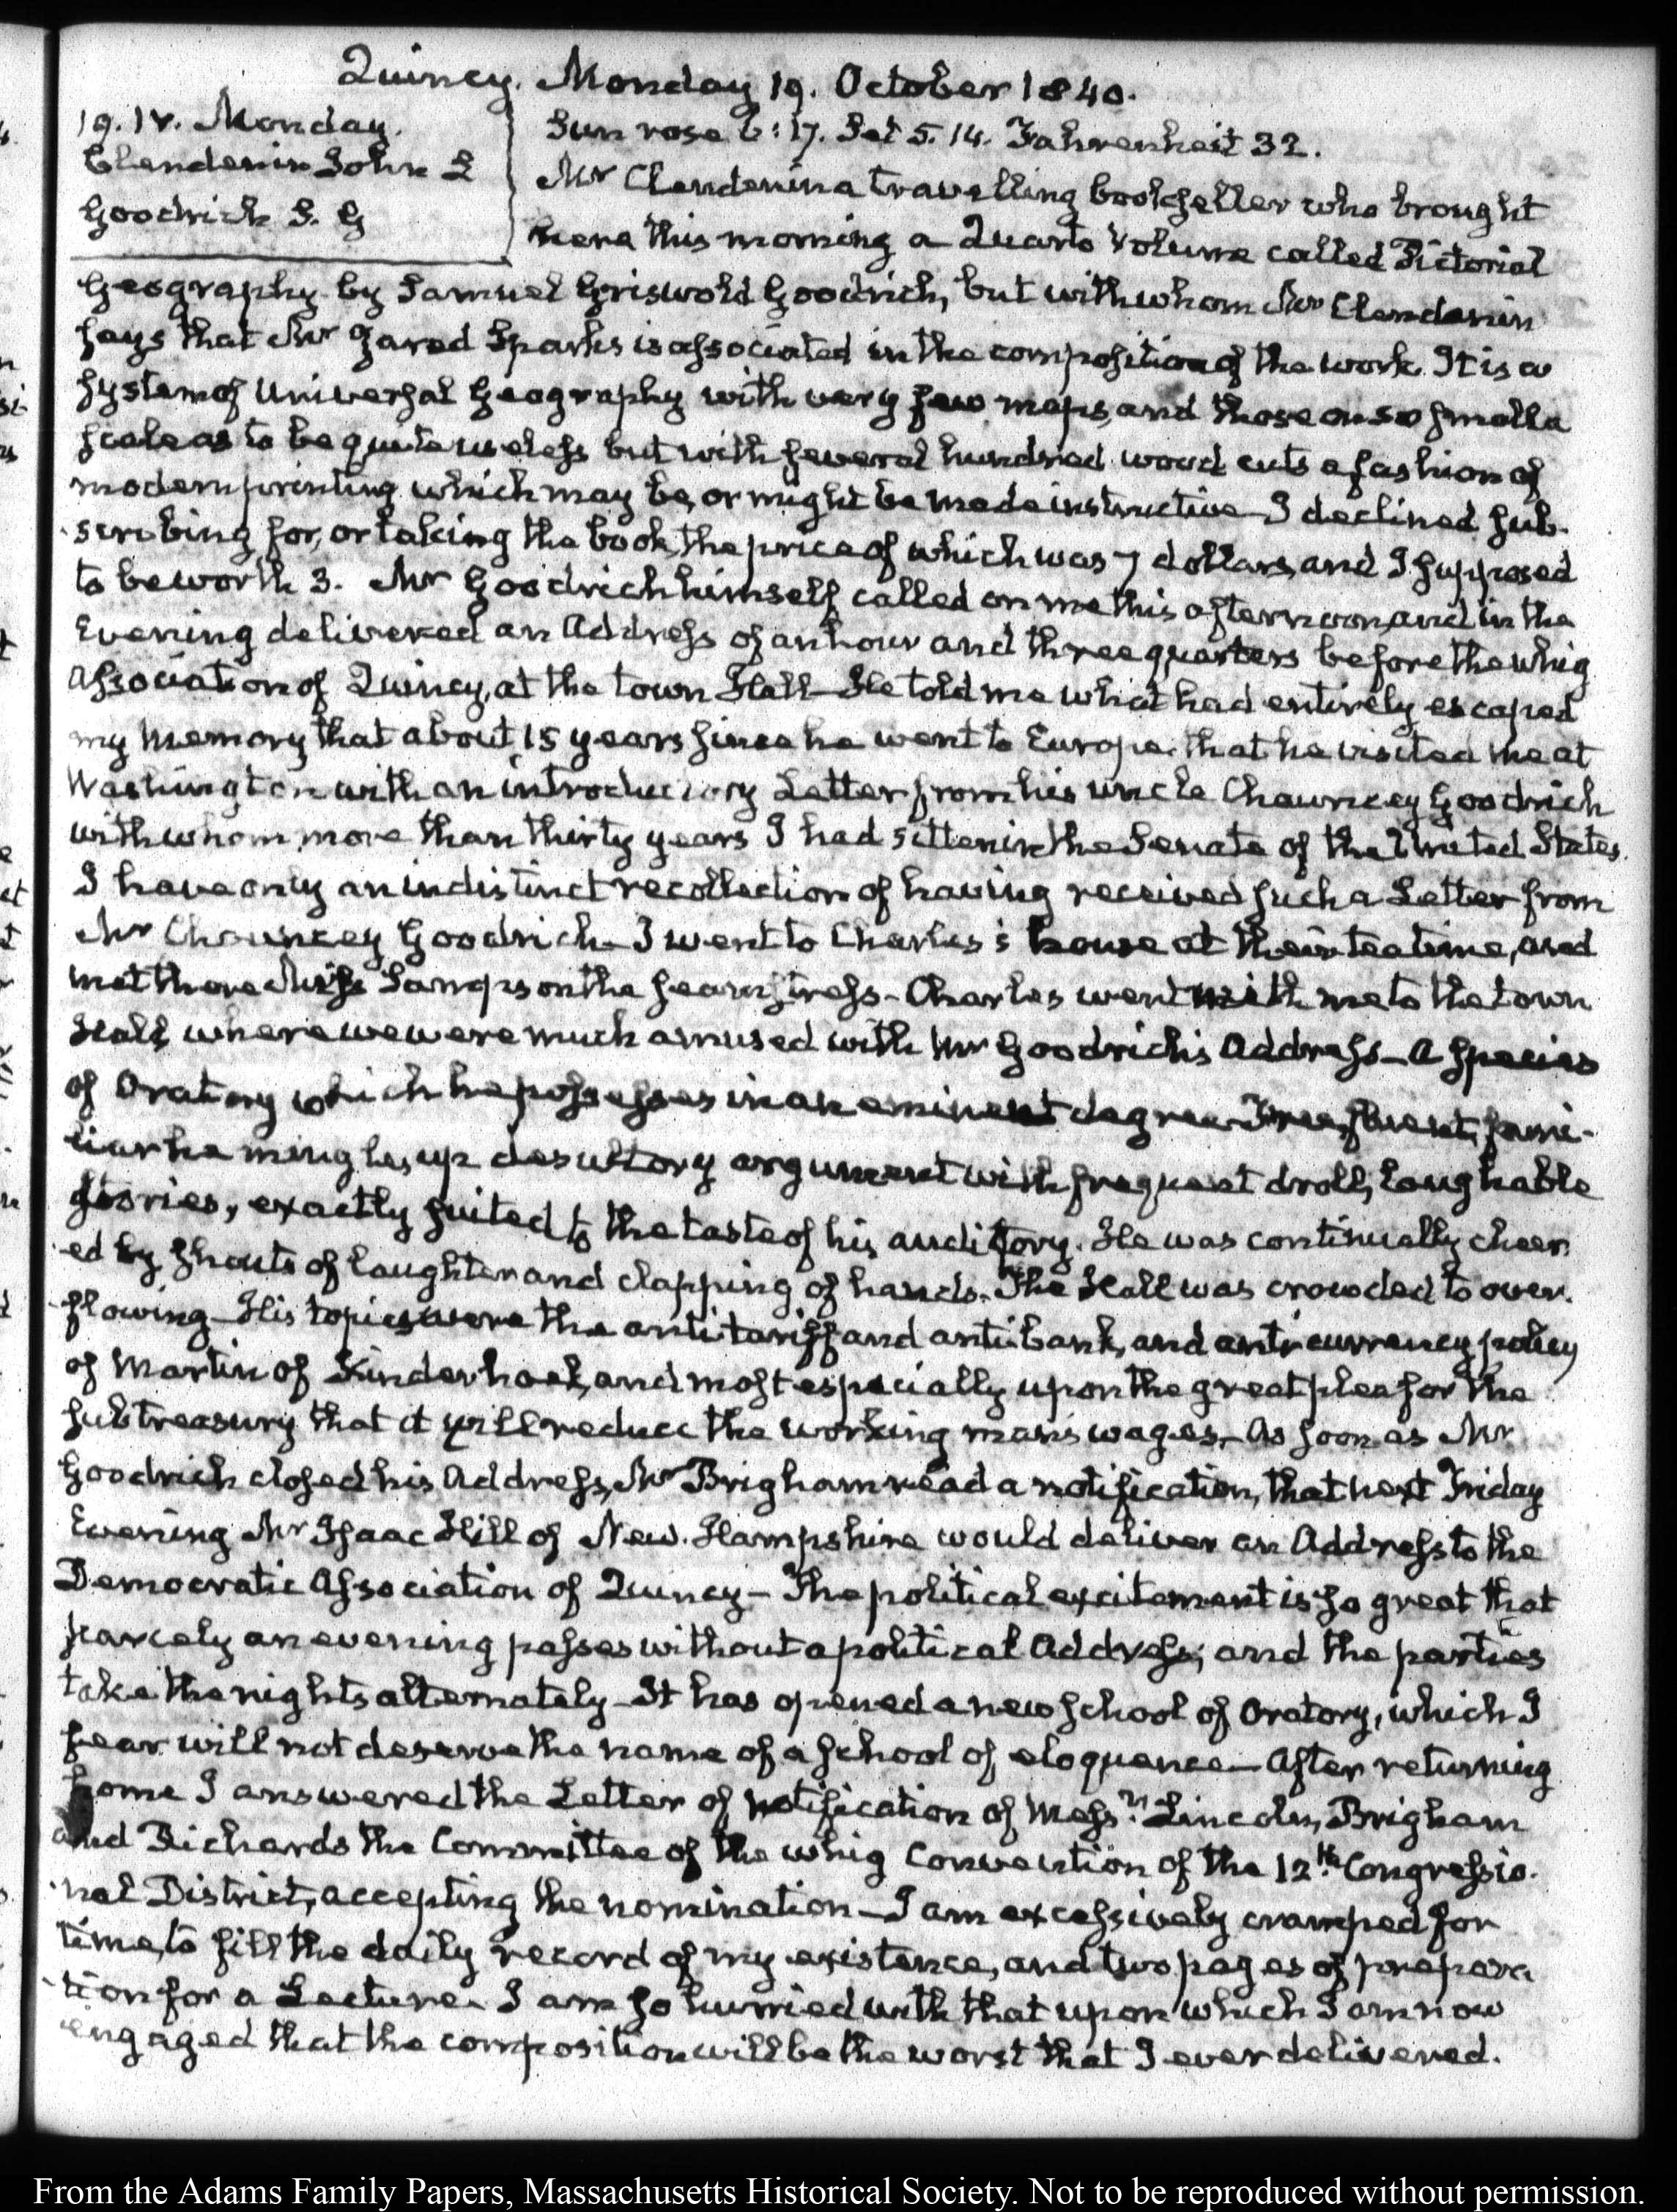 Quincy. Monday 19. October 1840.
19. IV. Monday.
Clendenin John S
Goodrich S. G
Sun rose 6:17. Set 5.14. Fahrenheit 32.
Mr Clendenin a travelling bookseller who brought
here this morning a Quarto Volume called Pictorial
Geography by Samuel Griswold Goodrich, but with whom Mr Clendenin
says that Mr Jared Sparks is associated in the composition of the work. It is a
system of Universal Geography with very few maps, and those on so small a
scale as to be quite useless but with several hundred wood cuts a fashion of
modern printing which may be, or might be made instructive— I declined sub-
-scribing for, or taking the book, the price of which was 7 dollars, and I supposed
to be worth 3. Mr Goodrich himself called on me this afternoon, and in the
Evening delivered an Address of an hour and three quarters before the Whig
Association of Quincy, at the town Hall— He told me what had entirely escaped
my memory, that about 15 years since he went to Europe. that he visited me at
Washington with an introductory Letter from his uncle Chauncey Goodrich
with whom more than thirty years I had sitten in the Senate of the United States.
I have only an indistinct recollection of having received such a Letter from
Mr Chauncey Goodrich— I went to Charles's house at their tea time, and
met there Miss Sampson the seamstress— Charles went with me to the town
Hall, where we were much amused with Mr Goodrich's Address— A species
of Oratory which he possesses in an eminent degree— Free, fluent, fami-
liar he mingles up desultory argument with frequent droll, laughable
stories, exactly suited to the taste of his auditory. He was continually cheer-
-ed by shouts of laughter and clapping of hands. The Hall was crowded to over-
-flowing— His topics were the anti tariff and anti bank, and anti currency policy
of Martin of Kinderhook, and most especially upon the great plea for the
subtreasury that it will reduce the working man's wages— As soon as Mr
Goodrich closed his Address, Mr Brigham read a notification, that next Friday
Evening Mr Isaac Hill of New-Hampshire would deliver an Address to the
Democratic Association of Quincy— The political excitement is so great that
scarcely an evening passes without a political Address; and the parties
take the nights alternately— It has opened a new school of Oratory, which I
fear will not deserve the name of a school of eloquence— After returning
home I answered the Letter of notification of Messrs. Lincoln, Brigham
and Richards the Committee of the Whig Convention of the 12th. Congressio-
-nal District, accepting the nomination— I am excessively cramped for
time, to fill the daily record of my existence, and two pages of prepara
-tion for a Lecture. I am so hurried with that upon which I am now
engaged that the composition will be the worst that I ever delivered.
From the Adams Family Papers, Massachusetts Historical Society. Not to be reproduced without permission.